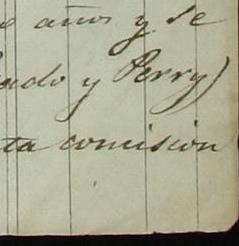 años y se
ado y Perry)
ta comision